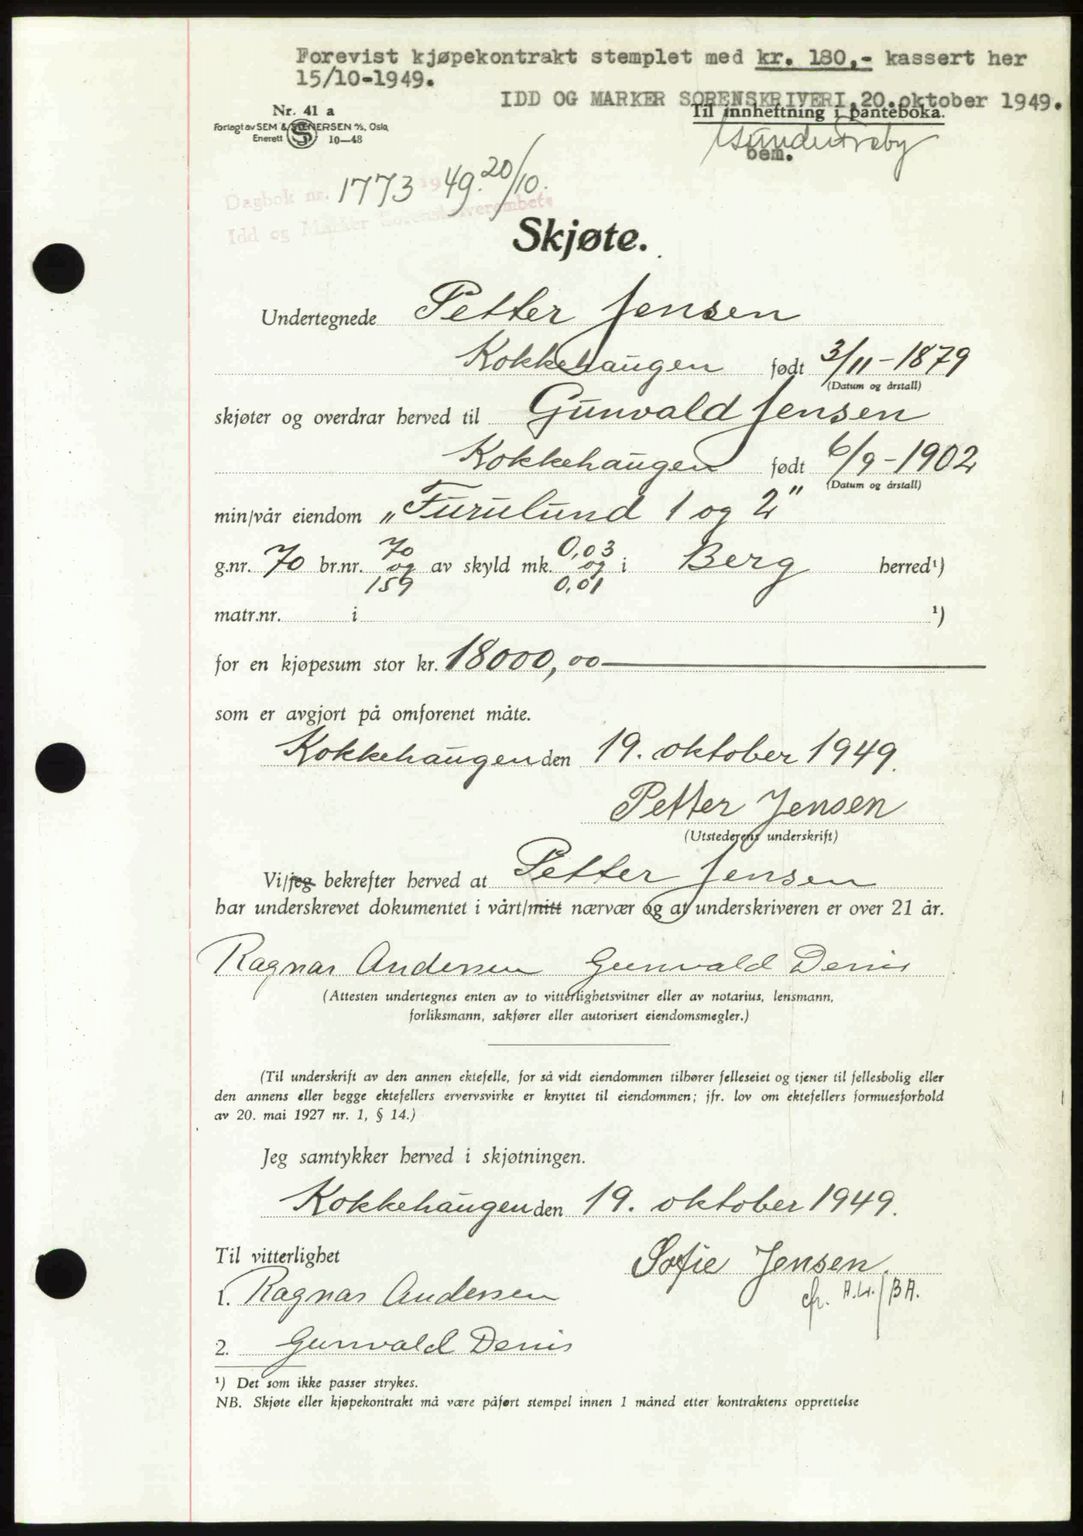 Forevist kjøpekontrakt stemplet med kr. 180,- kassert her
15/10-1949.
IDD OG MARKER SORENSKRIVERI, 20. oktober 1949.
Nr. 41 a
Til innheftning i panteboka.
Forlagt av SEM & STENERSEN A/S, Oslo
Enerett S 10-48
bem.
Dagbok nr. 1773 19 49. 20/10.
Idd og Marker Sorenskriverembete
Skjøte.
Undertegnede Petter Jensen
Kokkehaugen født 3/11-1879
(Datum og årstall)
skjøter og overdrar herved til Gunvald Jensen
Kokkehaugen født 6/9-1902
(Datum og årstall)
min/vår eiendom „Furulund 1 og 2"
g.nr. 70 br.nr. 70 og 159 av skyld mk. 0,03 og 0,01 i Berg herred¹)
matr.nr. i ¹)
for en kjøpesum stor kr. 18000,00
som er avgjort på omforenet måte.
Kokkehaugen den 19. oktober 1949.
Petter Jensen
(Utstederens underskrift)
Vi/jeg bekrefter herved at Petter Jensen
har underskrevet dokumentet i vårt/mitt nærvær og at underskriveren er over 21 år.
Ragnar Andersen Gunvald Denis
(Attesten undertegnes enten av to vitterlighetsvitner eller av notarius, lensmann,
forliksmann, sakfører eller autorisert eiendomsmegler.)
(Til underskrift av den annen ektefelle, for så vidt eiendommen tilhører felleseiet og tjener til fellesbolig eller
den annens eller begge ektefellers ervervsvirke er knyttet til eiendommen; jfr. lov om ektefellers formuesforhold
av 20. mai 1927 nr. 1, § 14.)
Jeg samtykker herved i skjøtningen.
Kokkehaugen den 19. oktober 1949.
Til vitterlighet
Sofie Jensen.
1. Ragnar Andersen
2. Gunvald Denis
¹) Det som ikke passer strykes.
NB. Skjøte eller kjøpekontrakt må være påført stempel innen 1 måned etter kontraktens opprettelse